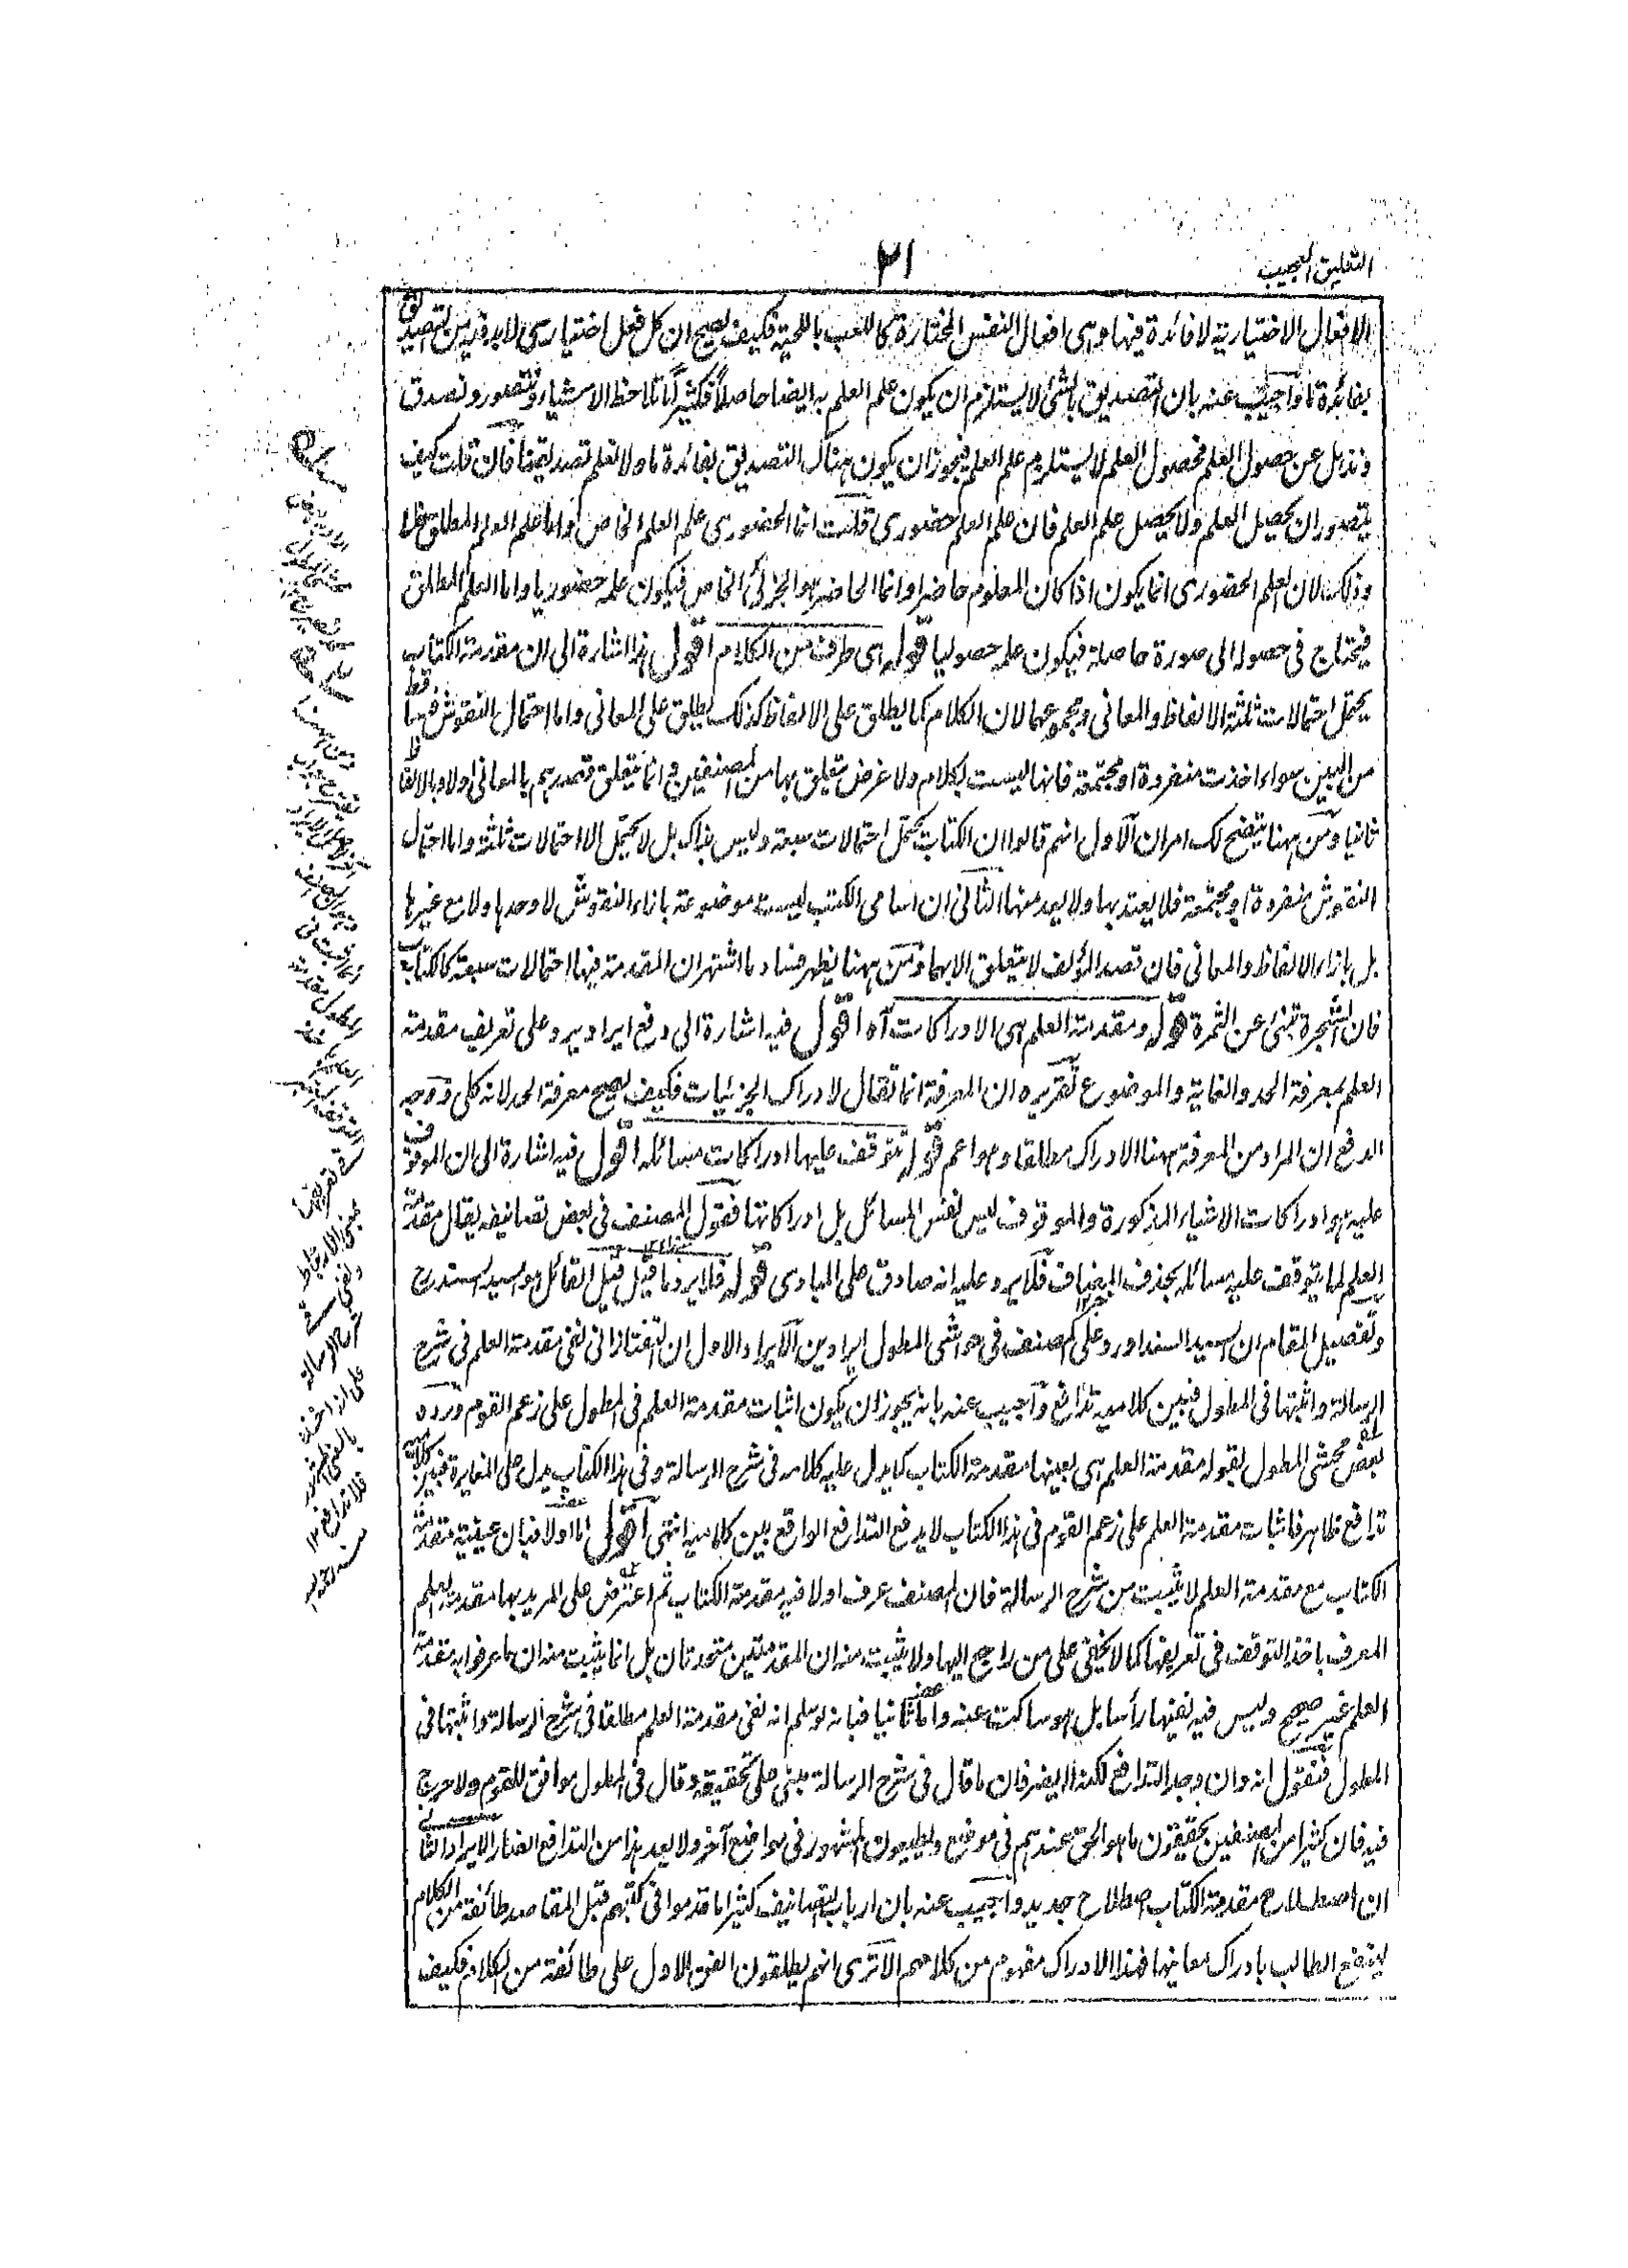 التعليق العجيب
٢١
الافعال الاختيارية لا فائدة فيها وهى افعال النفس المختارة كاللعب باللحية فكيف يصح ان كل فعل اختيارى لابد فيه من التصديق
بفائدة ما واجيب عنه بان التصديق بالشئ لا يستلزم ان يكون علم العلم به ايضا حاصلا فكثيرا ما نلاحظ الاشياء ونتصور ونصدق
ونذهل عن حصول العلم فحصول العلم لا يستلزم علم العلم فيجوز ان يكون هناك التصديق بفائدة ما ولا نعلم تصديقنا فان قلت كيف
يتصور ان يحصل العلم ولا يحصل علم العلم فان علم العلم حضورى قلت انما الحضورى علم العلم الخاص واما علم العلم المطلق فلا
وذلك لان العلم الحضورى انما يكون اذا كان المعلوم حاضرا وانما الحاضر هو الجزئى الخاص فيكون علمه حضوريا واما العلم المطلق
فيحتاج فى حصوله الى صورة حاصلة فيكون علمه حصوليا قوله اى طرف من الكلام اقول هذا اشارة الى ان مقدمة الكتاب
يحتمل احتمالات ثلثة الالفاظ والمعانى ومجموعهما لان الكلام كما يطلق على الالفاظ كذلك يطلق على المعانى واما احتمال النقوش فساقط
من البين سواء اخذت منفردة او مجتمعة فانها ليست بكلام ولا غرض يتعلق بها من المصنفين انما يتعلق قصدهم بالمعانى اولا وبالالفاظ
ثانيا ومن ههنا يتضح لك امران الاول انهم قالوا ان الكتاب يحتمل احتمالات سبعة وليس بذاك بل لا يحتمل الا احتمالات ثلثة واما احتمال
النقوش منفردة او مجتمعة فلا يعتد بها ولا يعد منها الثانى ان اسامى الكتب ليست موضوعة بازاء النقوش لا وحدها ولا مع غيرها
بل بازاء الالفاظ والمعانى فان قصد المؤلف لا يتعلق الا بهما ومن ههنا يظهر فساد ما اشتهر ان المقدمة فيها احتمالات سبعة كالكتاب
فان الشجرة تنبئ عن الثمرة قوله ومقدمة العلم هى الادراكات آه اقول فيه اشارة الى دفع ايراد يرد على تعريف مقدمة
العلم بمعرفة الحد والغاية والموضوع تقريره ان المعرفة انما تقال لادراك الجزئيات فكيف يصح معرفة الحد لانه كلى ووجه
الدفع ان المراد من المعرفة ههنا الادراك مطلقا وهو اعم قوله تتوقف عليها ادراكات مسائله اقول فيه اشارة الى ان الموقوف
عليه هو ادراكات الاشياء المذكورة والموقوف ليس نفس المسائل بل ادراكاتها فقول المصنف فى بعض تصانيفه يقال مقدمة
العلم لما يتوقف عليه مسائله بحذف المضاف فلا يرد عليه انه صادق على المبادى قوله فلا يرد ما قيل قيل القائل هو سيد السند رح
وتفصيل المقام ان السيد السند اورد على المصنف فى حواشى المطول ايرادين الايراد الاول ان التفتازانى نفى مقدمة العلم فى شرح
الرسالة واثبتها فى المطول فبين كلاميه تدافع واجيب عنه بانه يجوز ان يكون اثبات مقدمة العلم فى المطول على زعم القوم ورده
بعض محشى المطول بقوله مقدمة العلم هى بعينها مقدمة الكتاب كما يدل عليه كلامه فى شرح الرسالة وفى هذا الكتاب يدل على المغايرة فبين كلاميه
تدافع ظاهر فاثبات مقدمة العلم على زعم القوم فى هذا الكتاب لا يدفع التدافع الواقع بين كلاميه انتهى اقول اما اولا فبان عينية مقدمة
الكتاب مع مقدمة العلم لا يثبت من شرح الرسالة فان المصنف عرف اولا فيه مقدمة الكتاب ثم اعترض على المريد بها مقدمة العلم
المعرف باخذ التوقف فى تعريفها كما لا يخفى على من راجع اليها ولا يثبت منه ان المقدمتين متحدتان بل انما يثبت منه ان ما عرفوا به مقدمة
العلم غير صحيح وليس فيه نفيها رأسا بل هو ساكت عنه واما ثانيا فبانه لو سلم انه نفى مقدمة العلم مطلقا فى شرح الرسالة واثبتها فى
المطول فنقول انه وان وجد التدافع لكنه لا يضر فان ما قال فى شرح الرسالة مبنى على تحقيقه وقال فى المطول موافق للقوم ولا حرج
فيه فان كثيرا من المصنفين يحققون ما هو الحق عندهم فى موضع ويطبعون المشهور فى مواضع آخر ولا يعد هذا من التدافع الضار الايراد الثانى
ان اصطلاح مقدمة الكتاب اصطلاح جديد واجيب عنه بان ارباب التصانيف كثيرا ما قدموا فى كتبهم قبل المقاصد طائفة من الكلام
لينتفع الطالب بادراك معانيها فهذا الادراك مفهوم من كلامهم الا ترى انهم يطلقون الفن الاول على طائفة من الكلام فكيف
مبنى الارتباط
ونفى
شرح الرسالة
فلا تدافع ١٢